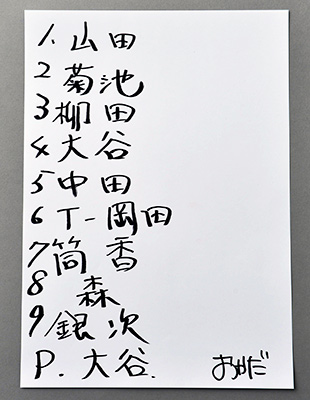 1. 山田
2 菊池
3 柳田
4 大谷
5 中田
6 T-岡田
7 筒香
8 森
9 銀次
P. 大谷.
おかだ